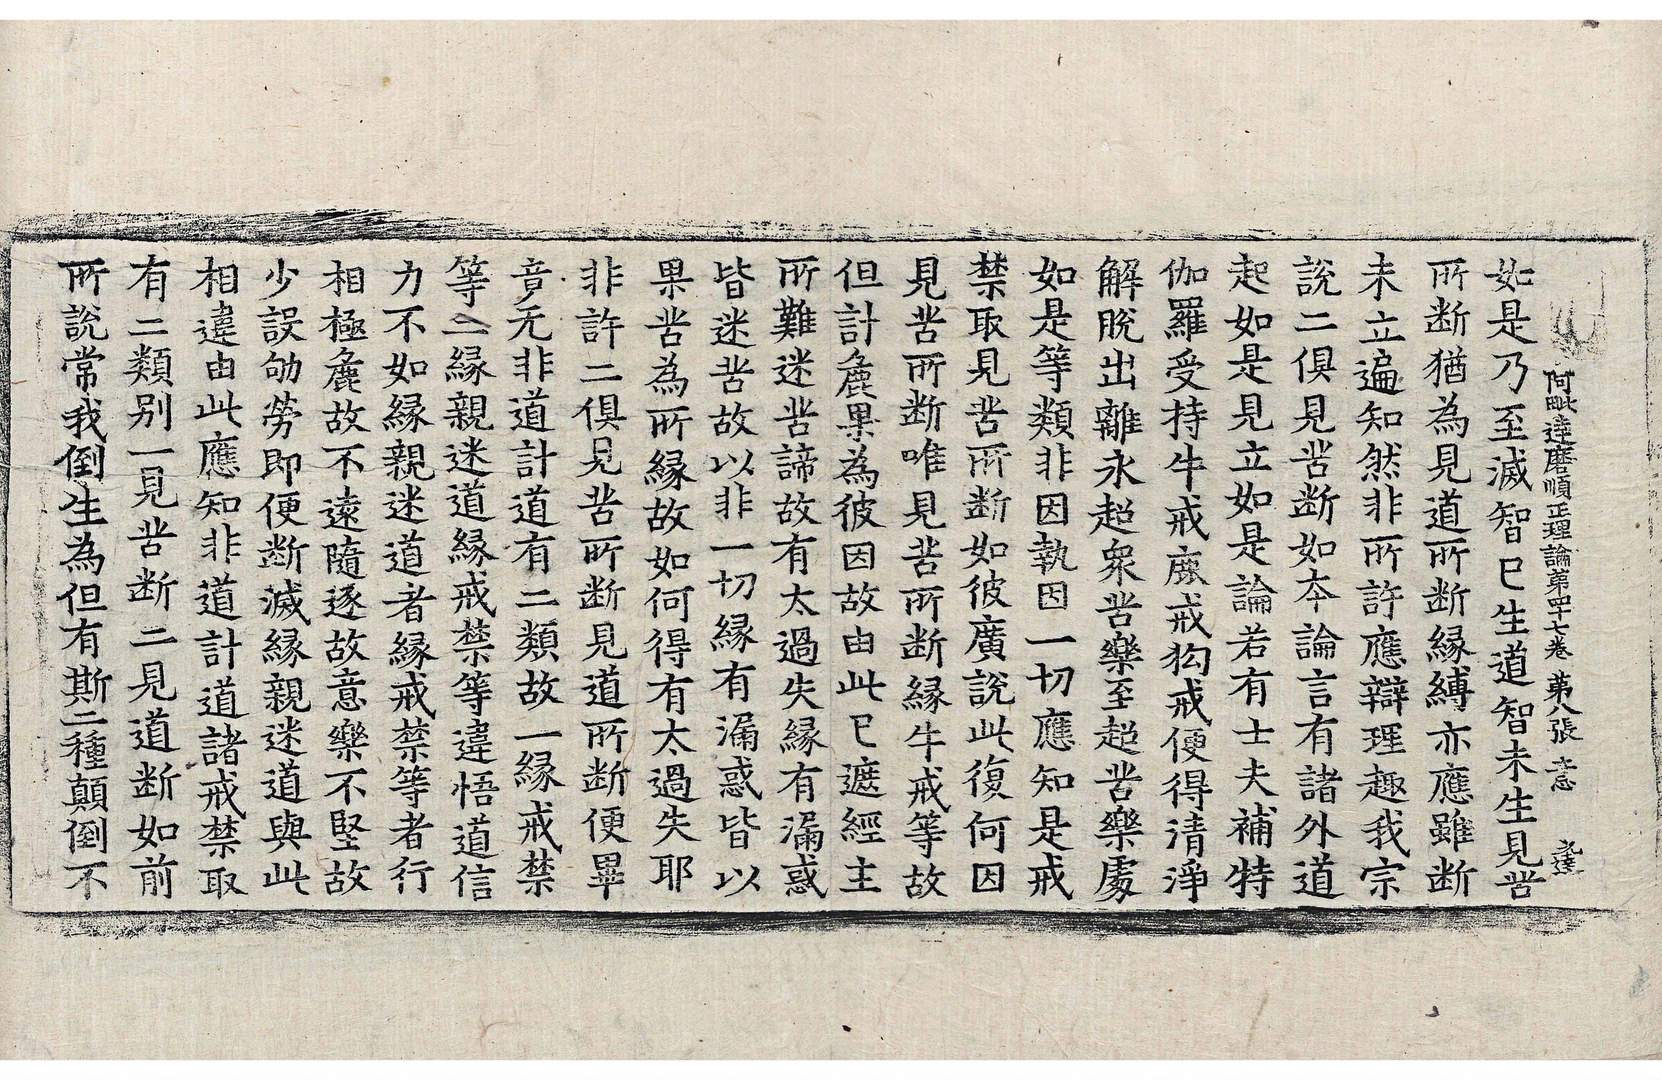 阿毗達磨順正理論苐四十七卷 苐八張 意
如是乃至滅智已生道智未生見苦
所断猶為見道所断縁縛亦應雖断
未立遍知然非所許應辯理趣我宗
說二俱見苦断如夲論言有諸外道
起如是見立如是論若有士夫補特
伽羅受持牛戒鹿戒狗戒便得清淨
解脫出離永超衆苦樂至超苦樂處
如是等類非因執因一切應知是戒
禁取見苦所断如彼廣說此復何因
見苦所断唯見苦所断緣牛戒等故
但計麁果為彼因故由此已遮經主
所難迷苦諦故有太過失縁有漏惑
皆迷苦故以非一切縁有漏惑皆以
果苦為所緣故如何得有太過失耶
非許二俱見苦所断見道所断便畢
竟无非道計道有二類故一縁戒禁
等二縁親迷道縁戒禁等違悟道信
力不如緣親迷道者縁戒禁等者行
相極麁故不遠隨逐故意樂不堅故
少設劬勞即便断滅縁親迷道與此
相違由此應知非道計道諸戒禁取
有二類別一見苦断二見道断如前
所說常我倒生為但有斯二種顛倒不